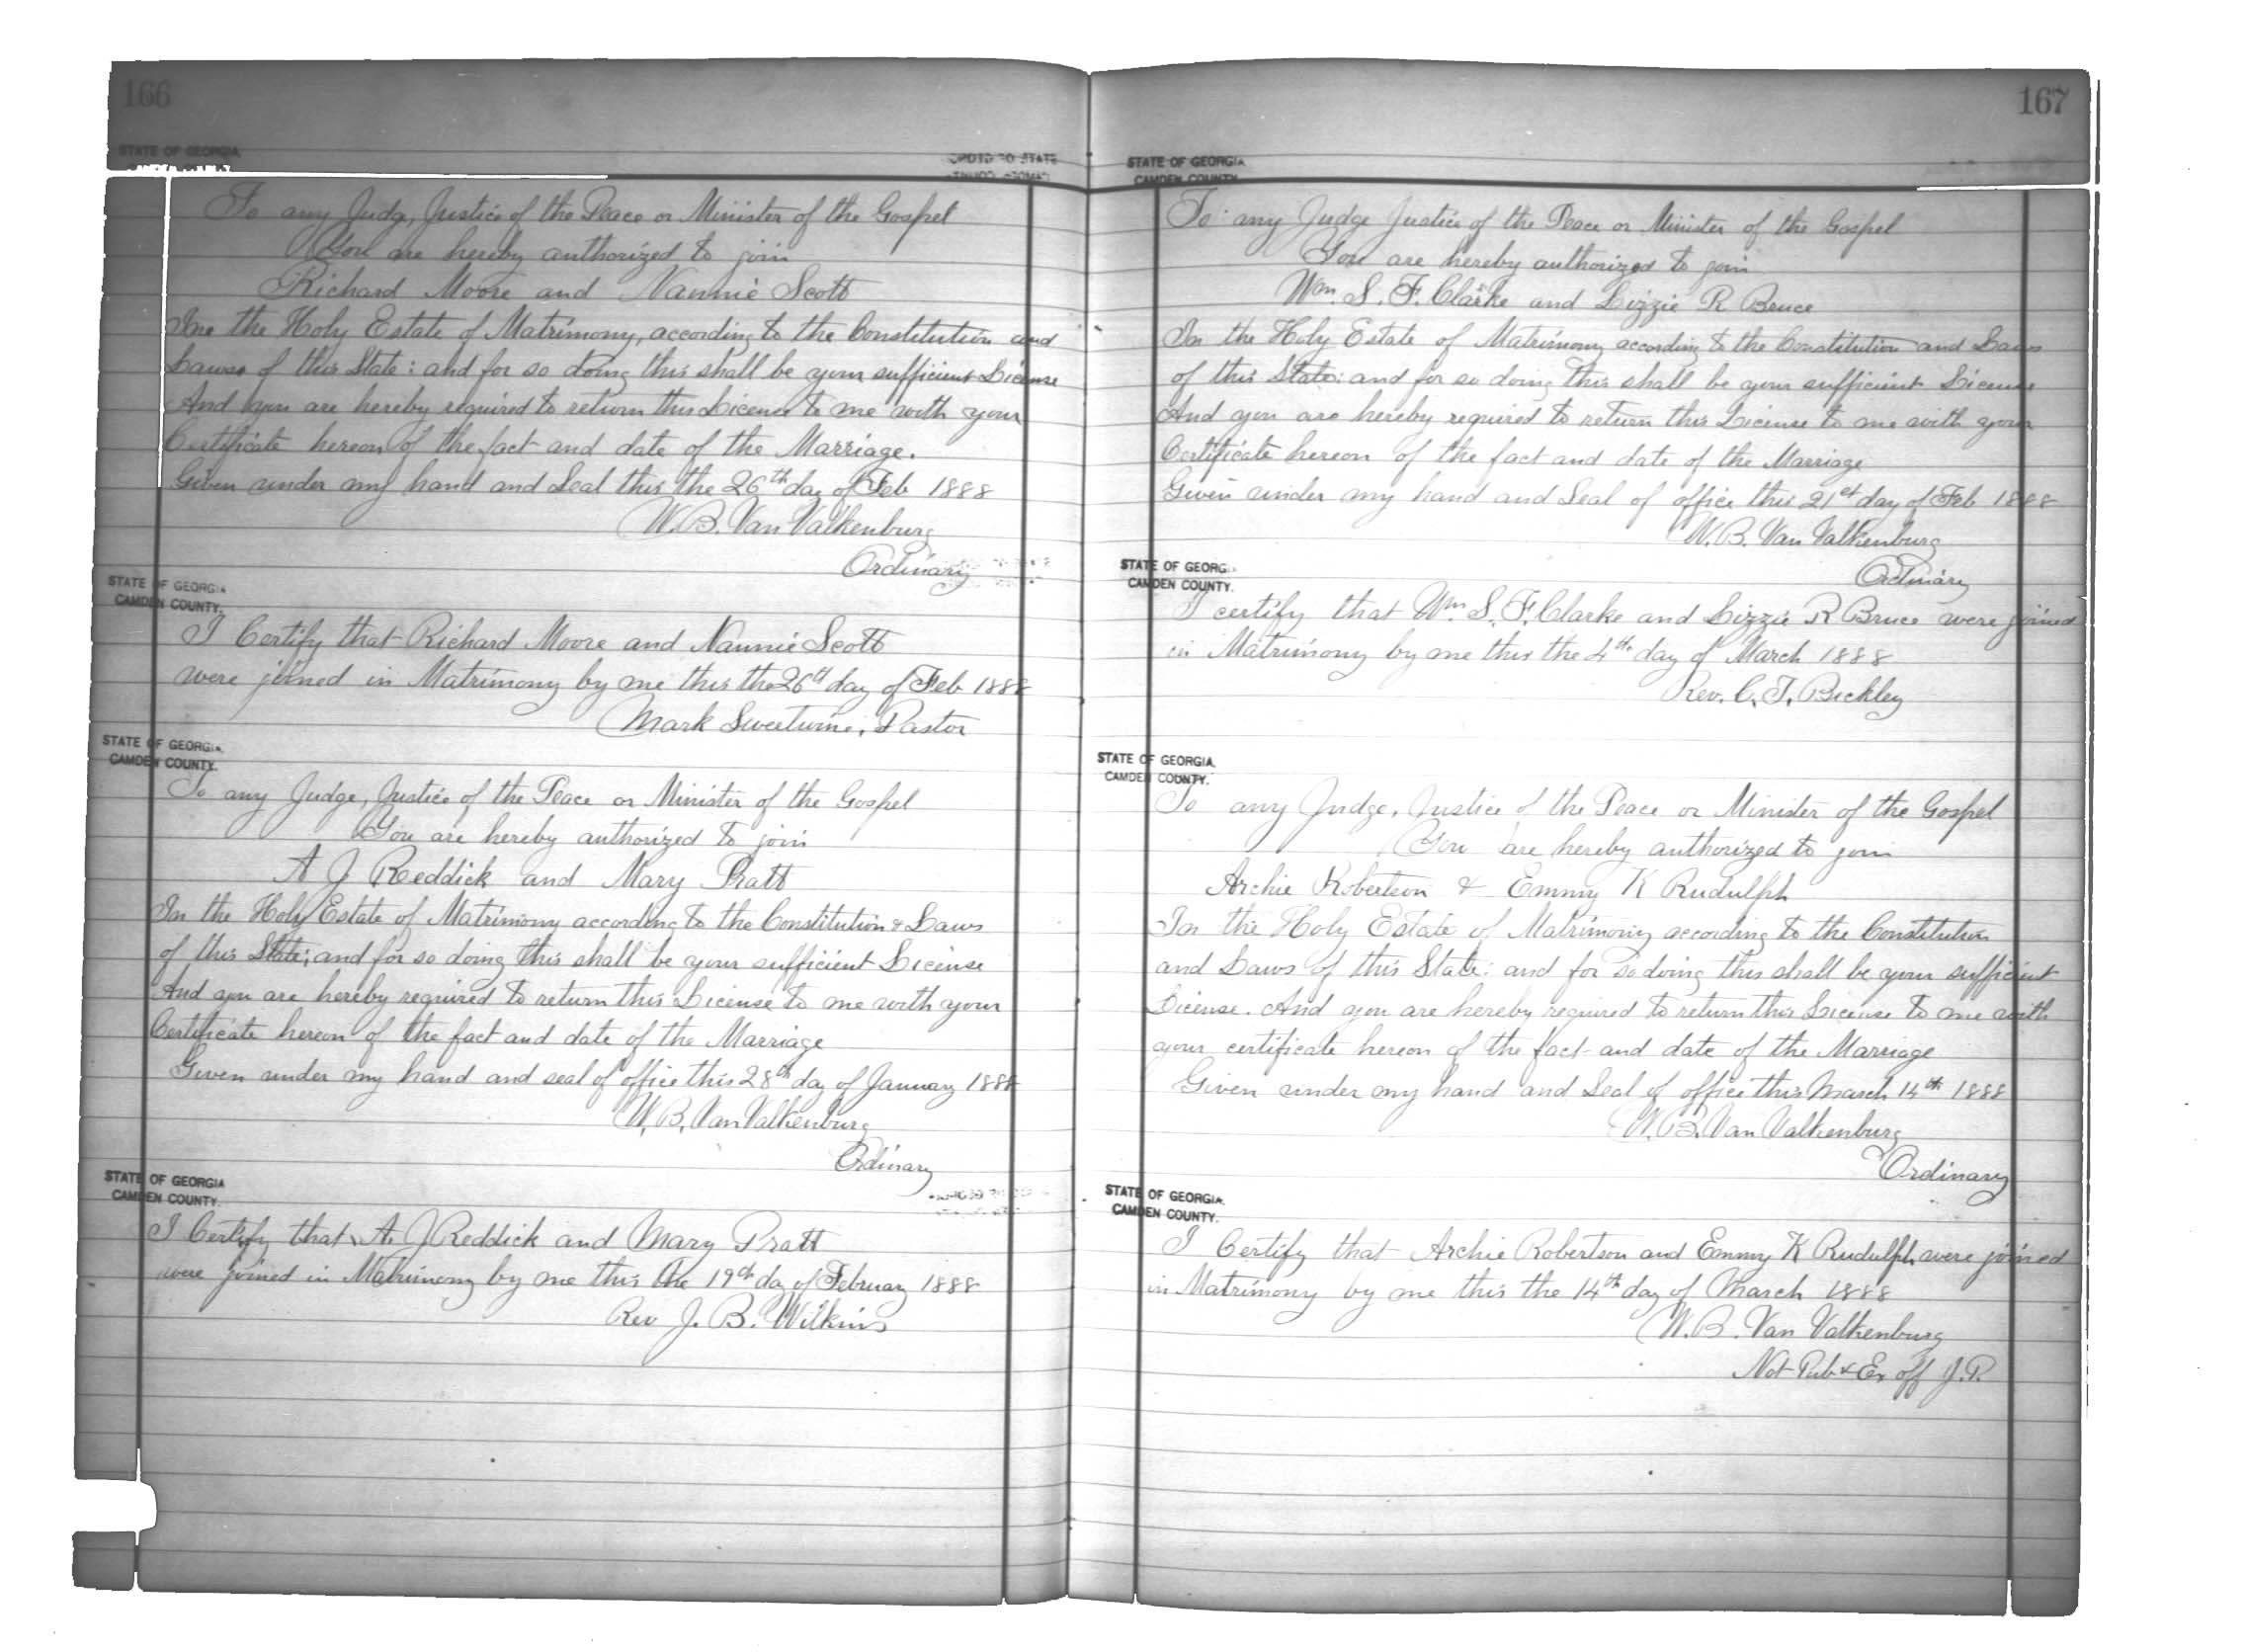 166
STATE OF GEORGIA
To any Judge, Justice of the Peace or Minister of the Gospel
You are hereby authorized to join
Richard Moore and Nannie Scott
In the Holy Estate of Matrimony, according to the Constitution and
Laws of this State: and for so doing this shall be your sufficient License
And you are hereby required to return this License to me with your
Certificate hereon of the fact and date of the Marriage.
Given under my hand and Seal this the 26th day of Feb 1888
W. B. Van Valkenburg
Ordinary
STATE OF GEORGIA
CAMDEN COUNTY.
I Certify that Richard Moore and Nannie Scott
were joined in Matrimony by me this the 26th day of Feb 1888
Mark Pastor
STATE OF GEORGIA.
CAMDEN COUNTY.
To any Judge, Justice of the Peace or Minister of the Gospel
You are hereby authorized to join
A J Reddick and Mary Pratt
In the Holy Estate of Matrimony according to the Constitution & Laws
of this State; and for so doing this shall be your sufficient License
And you are hereby required to return this License to me with your
Certificate hereon of the fact and date of the Marriage
Given under my hand and seal of office this 28th day of January 1888
W. B. Van Valkenburg
Ordinary
STATE OF GEORGIA
CAMDEN COUNTY.
I Certify that A. J Reddick and Mary Pratt
were joined in Matrimony by me this the 19th day of February 1888
Rev J. B. Wilkins
167
STATE OF GEORGIA
CAMDEN COUNTY
To any Judge Justice of the Peace or Minister of the Gospel
You are hereby authorized to join
Wm. S. F. Clarke and Lizzie R Bruce
In the Holy Estate of Matrimony according to the Constitution and Laws
of this State: and for so doing this shall be your sufficient License
And you are hereby required to return this License to me with your
Certificate hereon of the fact and date of the Marriage
Given under my hand and Seal of office this 21st day of Feb 1888
W. B. Van Valkenburg
Ordinary
STATE OF GEORGIA
CAMDEN COUNTY.
I certify that Wm S. F. Clarke and Lizzie R Bruce were joined
in Matrimony by me this the 4th day of March 1888
Rev. C. T. Bickley
STATE OF GEORGIA.
CAMDEN COUNTY.
To any Judge, Justice of the Peace or Minister of the Gospel
You are hereby authorized to join
Archie Robertson & Emmy K Rudulph
In the Holy Estate of Matrimony according to the Constitution
and Laws of this State: and for so doing this shall be your sufficient
License. And you are hereby required to return this License to me with
your certificate hereon of the fact and date of the Marriage
Given under my hand and Seal of office this March 14th 1888
W. B. Van Valkenburg
Ordinary
STATE OF GEORGIA.
CAMDEN COUNTY.
I Certify that Archie Robertson and Emmy K Rudulph were joined
in Matrimony by me this the 14th day of March 1888
W. B. Van Valkenburg
Not Pub & Ex off J.P.